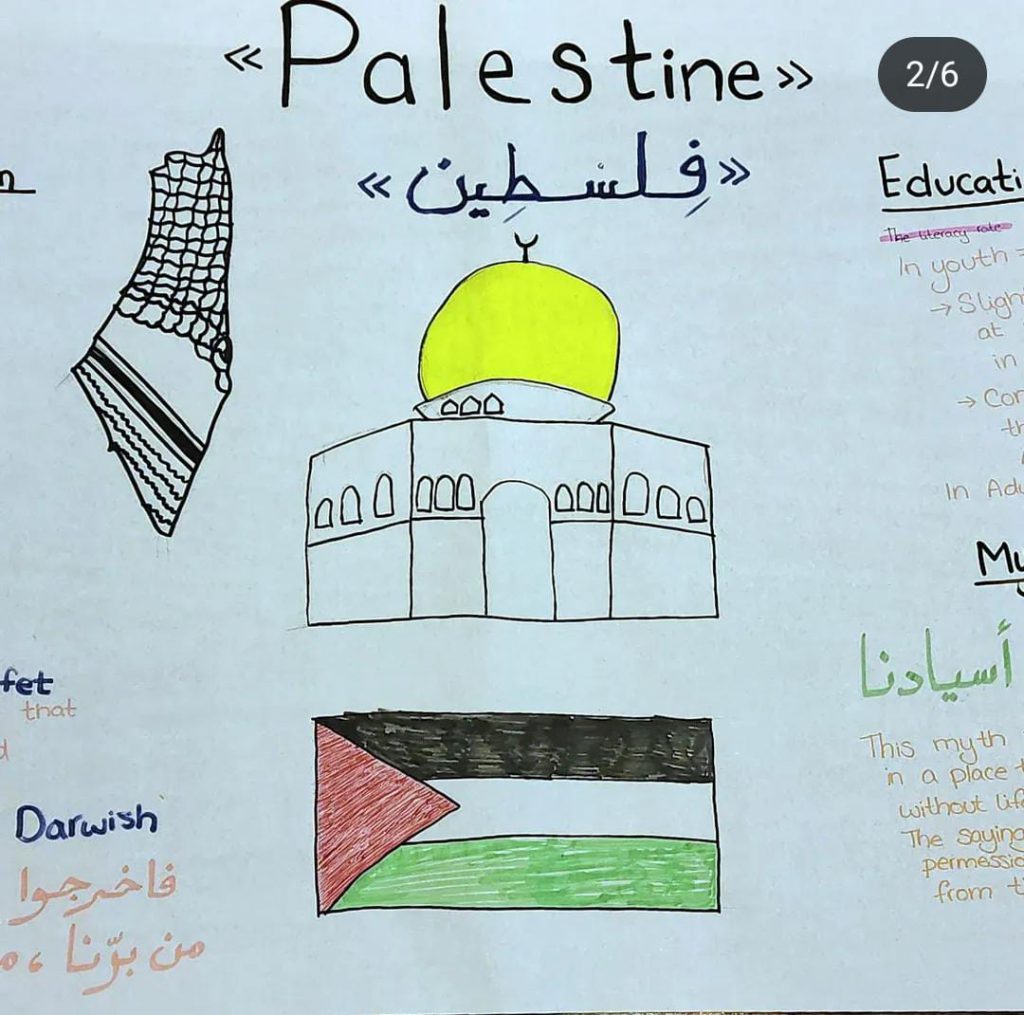 «Palestine»
2/6
«فِلسْطِين»
Educati
The literacy rate
In youth =
→ Sligh
at
in
→ Cor
th
In Adu
My
أسيادنا
This myth
in a place t
without lif
The saying
permessio
from t
fet
that
d
Darwish
فاخرجوا
من برّنا ، م